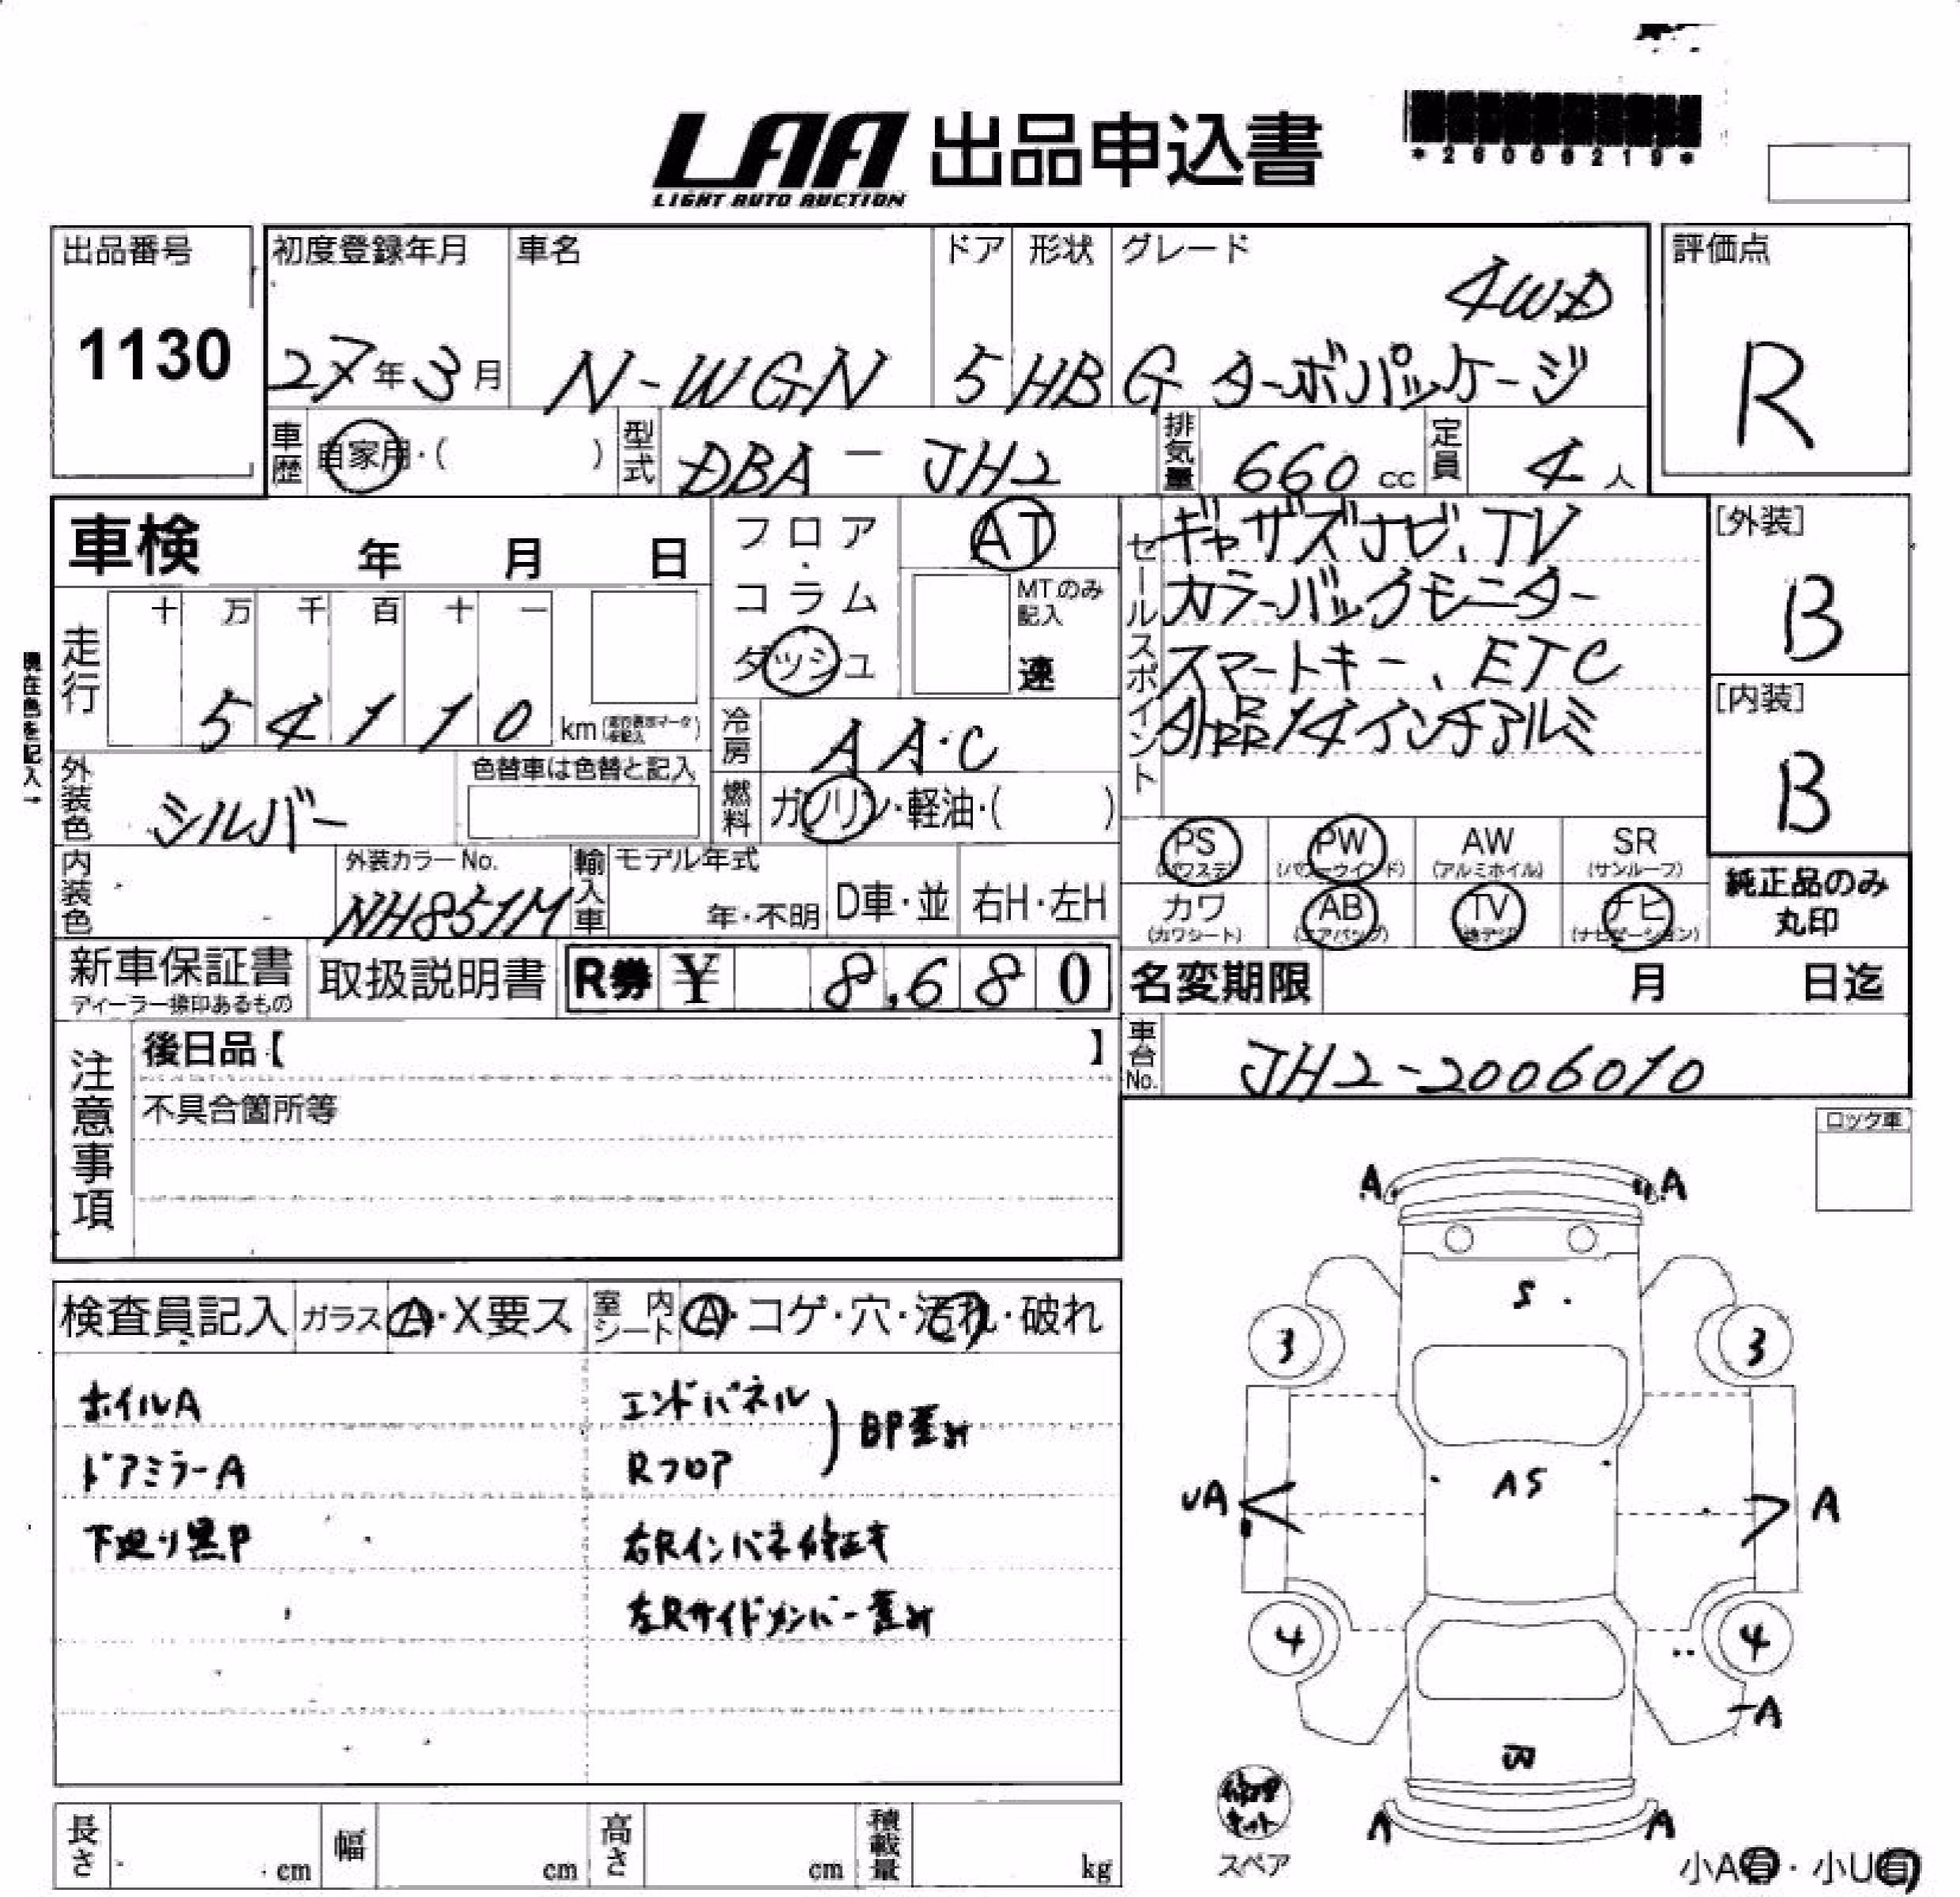 LAA 出品申込書
LIGHT AUTO AUCTION
*26006219*
出品番号 初度登録年月 車名 ドア 形状 グレード 評価点
4WD
1130 27年3月 N-WGN 5 HB G ターボパッケージ R
車歴 自家用・( ) 型式 DBA-JH2 排気量 660cc 定員 4人
車検 年 月 日
フロア・コラム
ダッシュ
AT
MTのみ記入
速
走行 十 万 千 百 十 一
54110 km
現在色を記入→
外装色 シルバー
色替車は色替と記入
冷房 AAC
燃料 ガソリン・軽油・( )
内装色
外装カラーNo.
NH851M
輸入車 モデル年式
年・不明 D車・並 右H・左H
セールスポイント
ギャザズナビ、TV
カラーバックモニター
スマートキー、ETC
14インチアルミ
[外装]
B
[内装]
B
PS PW AW SR
(パワステ) (パワーウインド) (アルミホイル) (サンルーフ)
カワ AB TV ナビ
(カワシート) (エアバッグ) (ナビゲーション)
純正品のみ
丸印
新車保証書
ディーラー捺印あるもの
取扱説明書 R券 ¥ 8,680
名変期限 月 日迄
車台No. JH2-2006010
注意事項
後日品【 】
不具合箇所等
ロック車
検査員記入 ガラス A・X要ス 室内シート A・コゲ・穴・汚れ・破れ
ホイルA
ドアミラーA
下廻り黒P
エンドパネル
Rフロア
BP歪み
右Rインパネ修正済
左Rサイドメンバー歪み
A A
S
3 3
UA AS A
4 4
A
B
A A
修理キット
スペア
小A有・小U有
長さ cm 幅 cm 高さ cm 積載量 kg